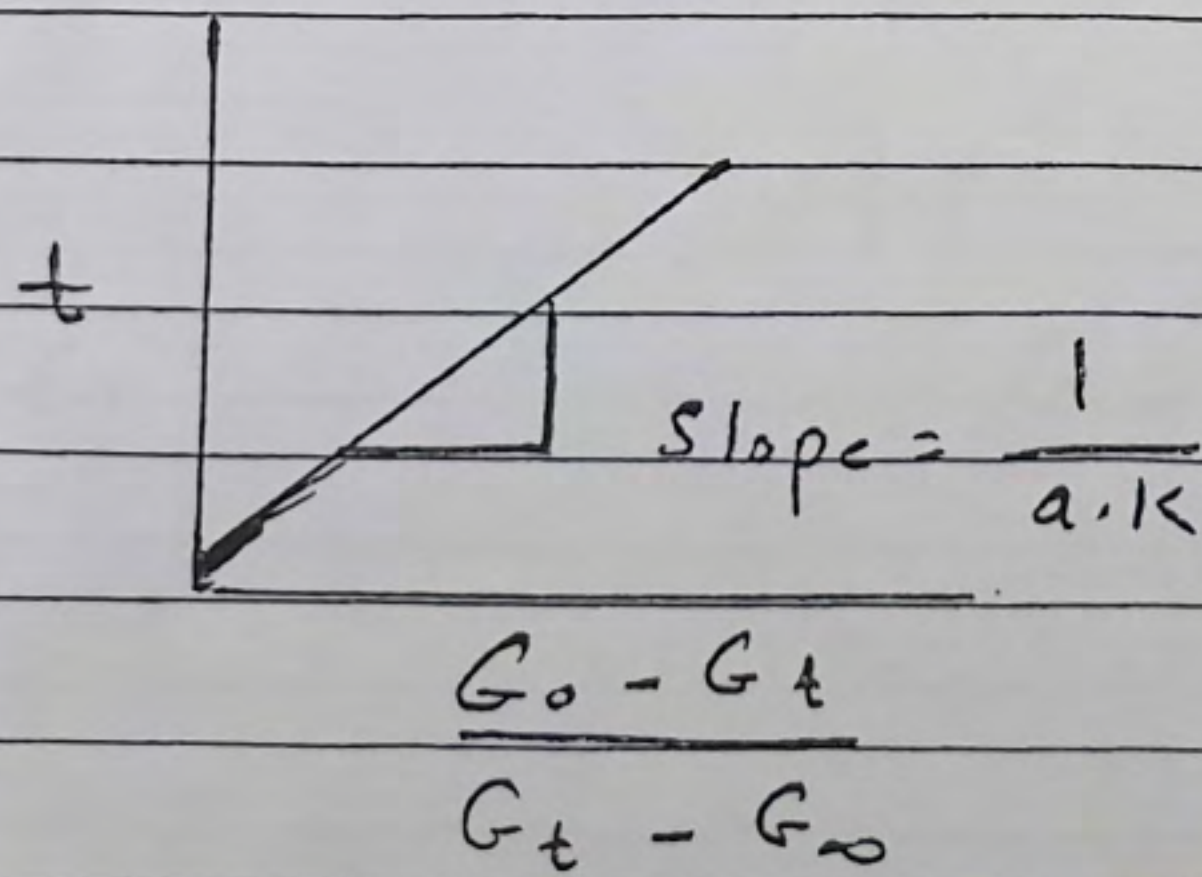 t
Slope = 1
a.K
G₀ - G t
G t - G∞